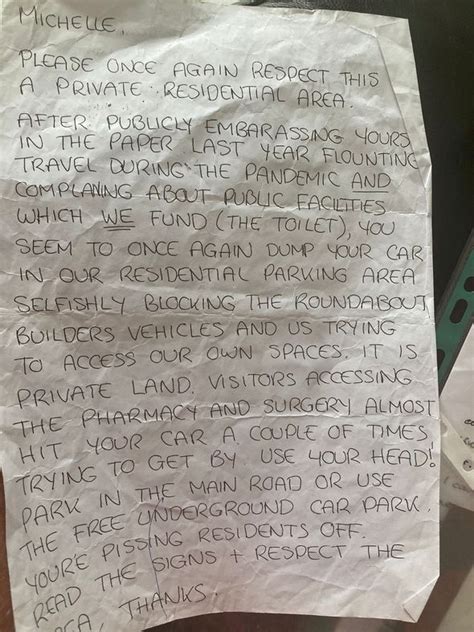 MICHELLE,
PLEASE ONCE AGAIN RESPECT THIS
A PRIVATE RESIDENTIAL AREA.
AFTER PUBLICLY EMBARASSING YOURS
IN THE PAPER LAST YEAR FLOUNTING
TRAVEL DURING THE PANDEMIC AND
COMPLANING ABOUT PUBLIC FACILITIES
WHICH WE FUND (THE TOILET), YOU
SEEM TO ONCE AGAIN DUMP YOUR CAR
IN OUR RESIDENTIAL PARKING AREA
SELFISHLY BLOCKING THE ROUNDABOUT,
BUILDERS VEHICLES AND US TRYING
TO ACCESS OUR OWN SPACES. IT IS
PRIVATE LAND. VISITORS ACCESSING
THE PHARMACY AND SURGERY ALMOST
HIT YOUR CAR A COUPLE OF TIMES
TRYING TO GET BY. USE YOUR HEAD!
PARK IN THE MAIN ROAD OR USE
THE FREE UNDERGROUND CAR PARK.
YOU'RE PISSING RESIDENTS OFF.
READ THE SIGNS + RESPECT THE
THANKS.